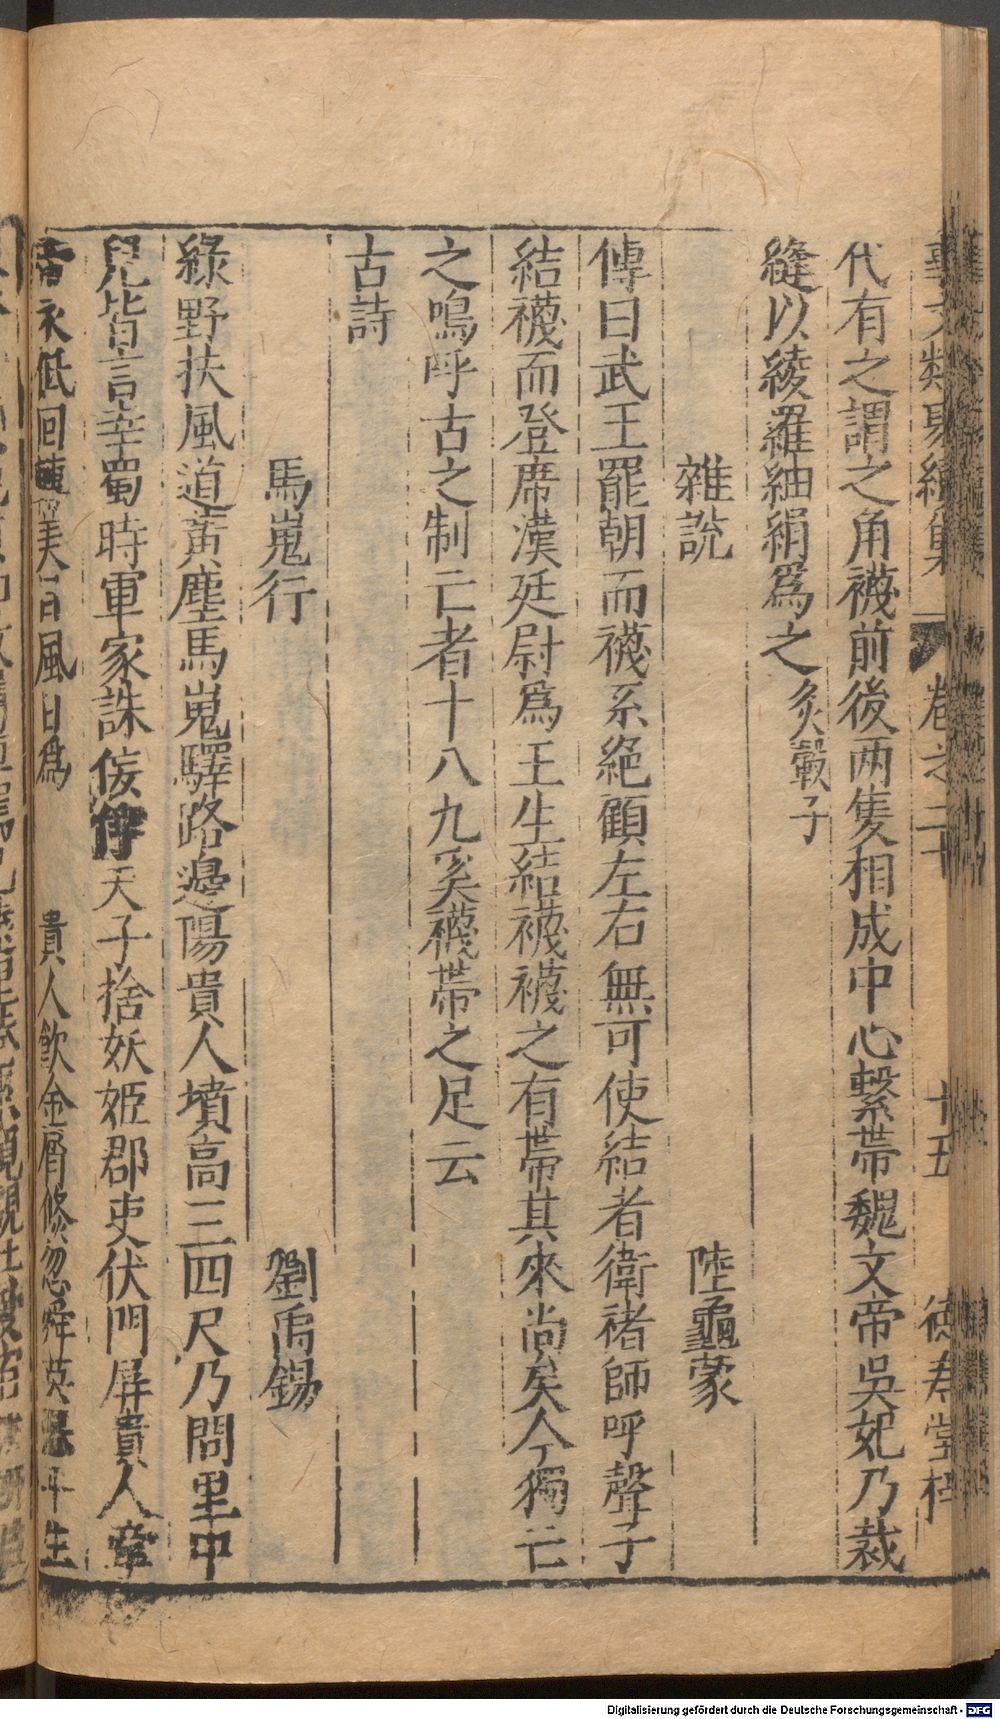 事文類聚續集
卷之二十
十五
德壽堂梓
代有之謂之角襪前後两隻相成中心繫帯魏文帝吳妃乃裁
縫以綾羅紬絹爲之炙轂子
雜說
陸龜蒙
傳曰武王罷朝而襪系絶顧左右無可使結者衛褚師呼聲子
結襪而登席漢廷尉爲王生結襪襪之有帯其來尚矣今獨亡
之嗚呼古之制亡者十八九奚襪帯之足云
古詩
馬嵬行
劉禹錫
綠野扶風道黃塵馬嵬驛路邊陽貴人墳高三四尺乃問里中
兒皆言幸蜀時軍家誅佞 天子捨妖姬郡吏伏門屏貴人牽
帝衣低回轉美目風日爲
貴人飲金屑倐忽舜英 平生
Digitalisierung gefördert durch die Deutsche Forschungsgemeinschaft - DFG